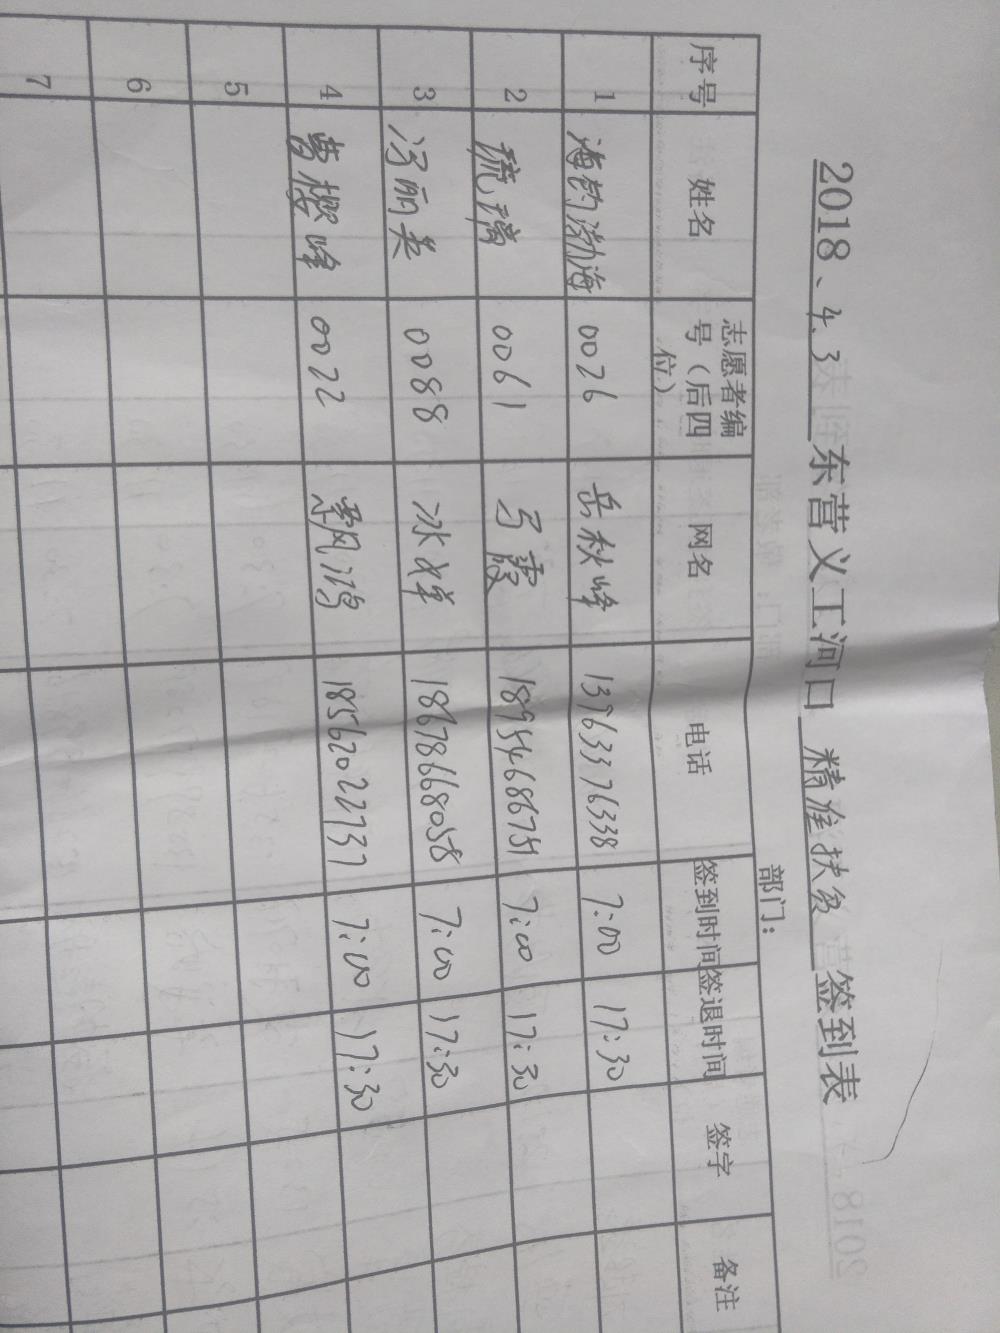 2018、4.3 东营义工河口 精准扶贫 签到表
部门：
序号 姓名 志愿者编号（后四位） 网名 电话 签到时间 签退时间 签字 备注
1 海韵渤海 0026 岳秋峰 13763376338 7:00 17:30
2 琉璃 0061 马霞 18954686751 7:00 17:30
3 冯丽英 0088 冰峰 18678668058 7:00 17:30
4 曹樱峰 0022 飘鸿 18562022737 7:00 17:30
5
6
7